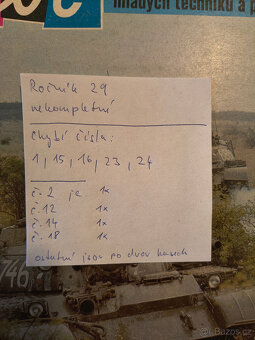 mladých techniků a
Ročník 29
nekompletní
chybí čísla:
1, 15, 16, 23, 24
č. 2 je 1x
č. 12 1x
č. 14 1x
č. 18 1x
ostatní jsou po dvou kusech
746
sbazar.cz